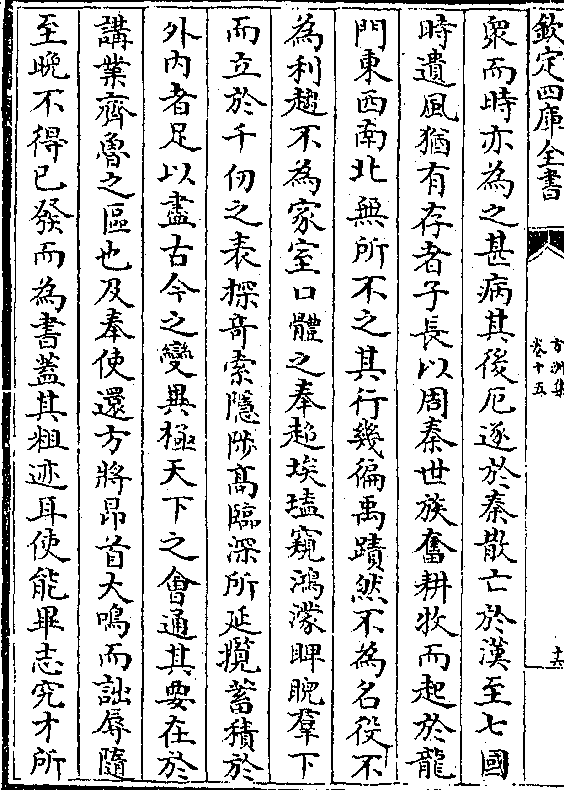 欽定四庫全書
方洲集
卷十五
十六
衆而時亦為之甚病其後厄逐於秦散亡於漢至七國
時遺風猶有存者子長以周秦世族奮耕牧而起於龍
門東西南北無所不之其行幾徧禹蹟然不為名役不
為利趨不為家室口體之奉超埃𡏖窺鴻濛睥睨羣下
而立於千仞之表探奇索隱陟髙臨深所延攬蓄積於
外内者足以盡古今之變異極天下之㑹通其要在於
講業齊魯之區也及奉使還方將昂首大鳴而詘辱隨
至晩不得已發而為書葢其粗迹耳使能畢志究才所